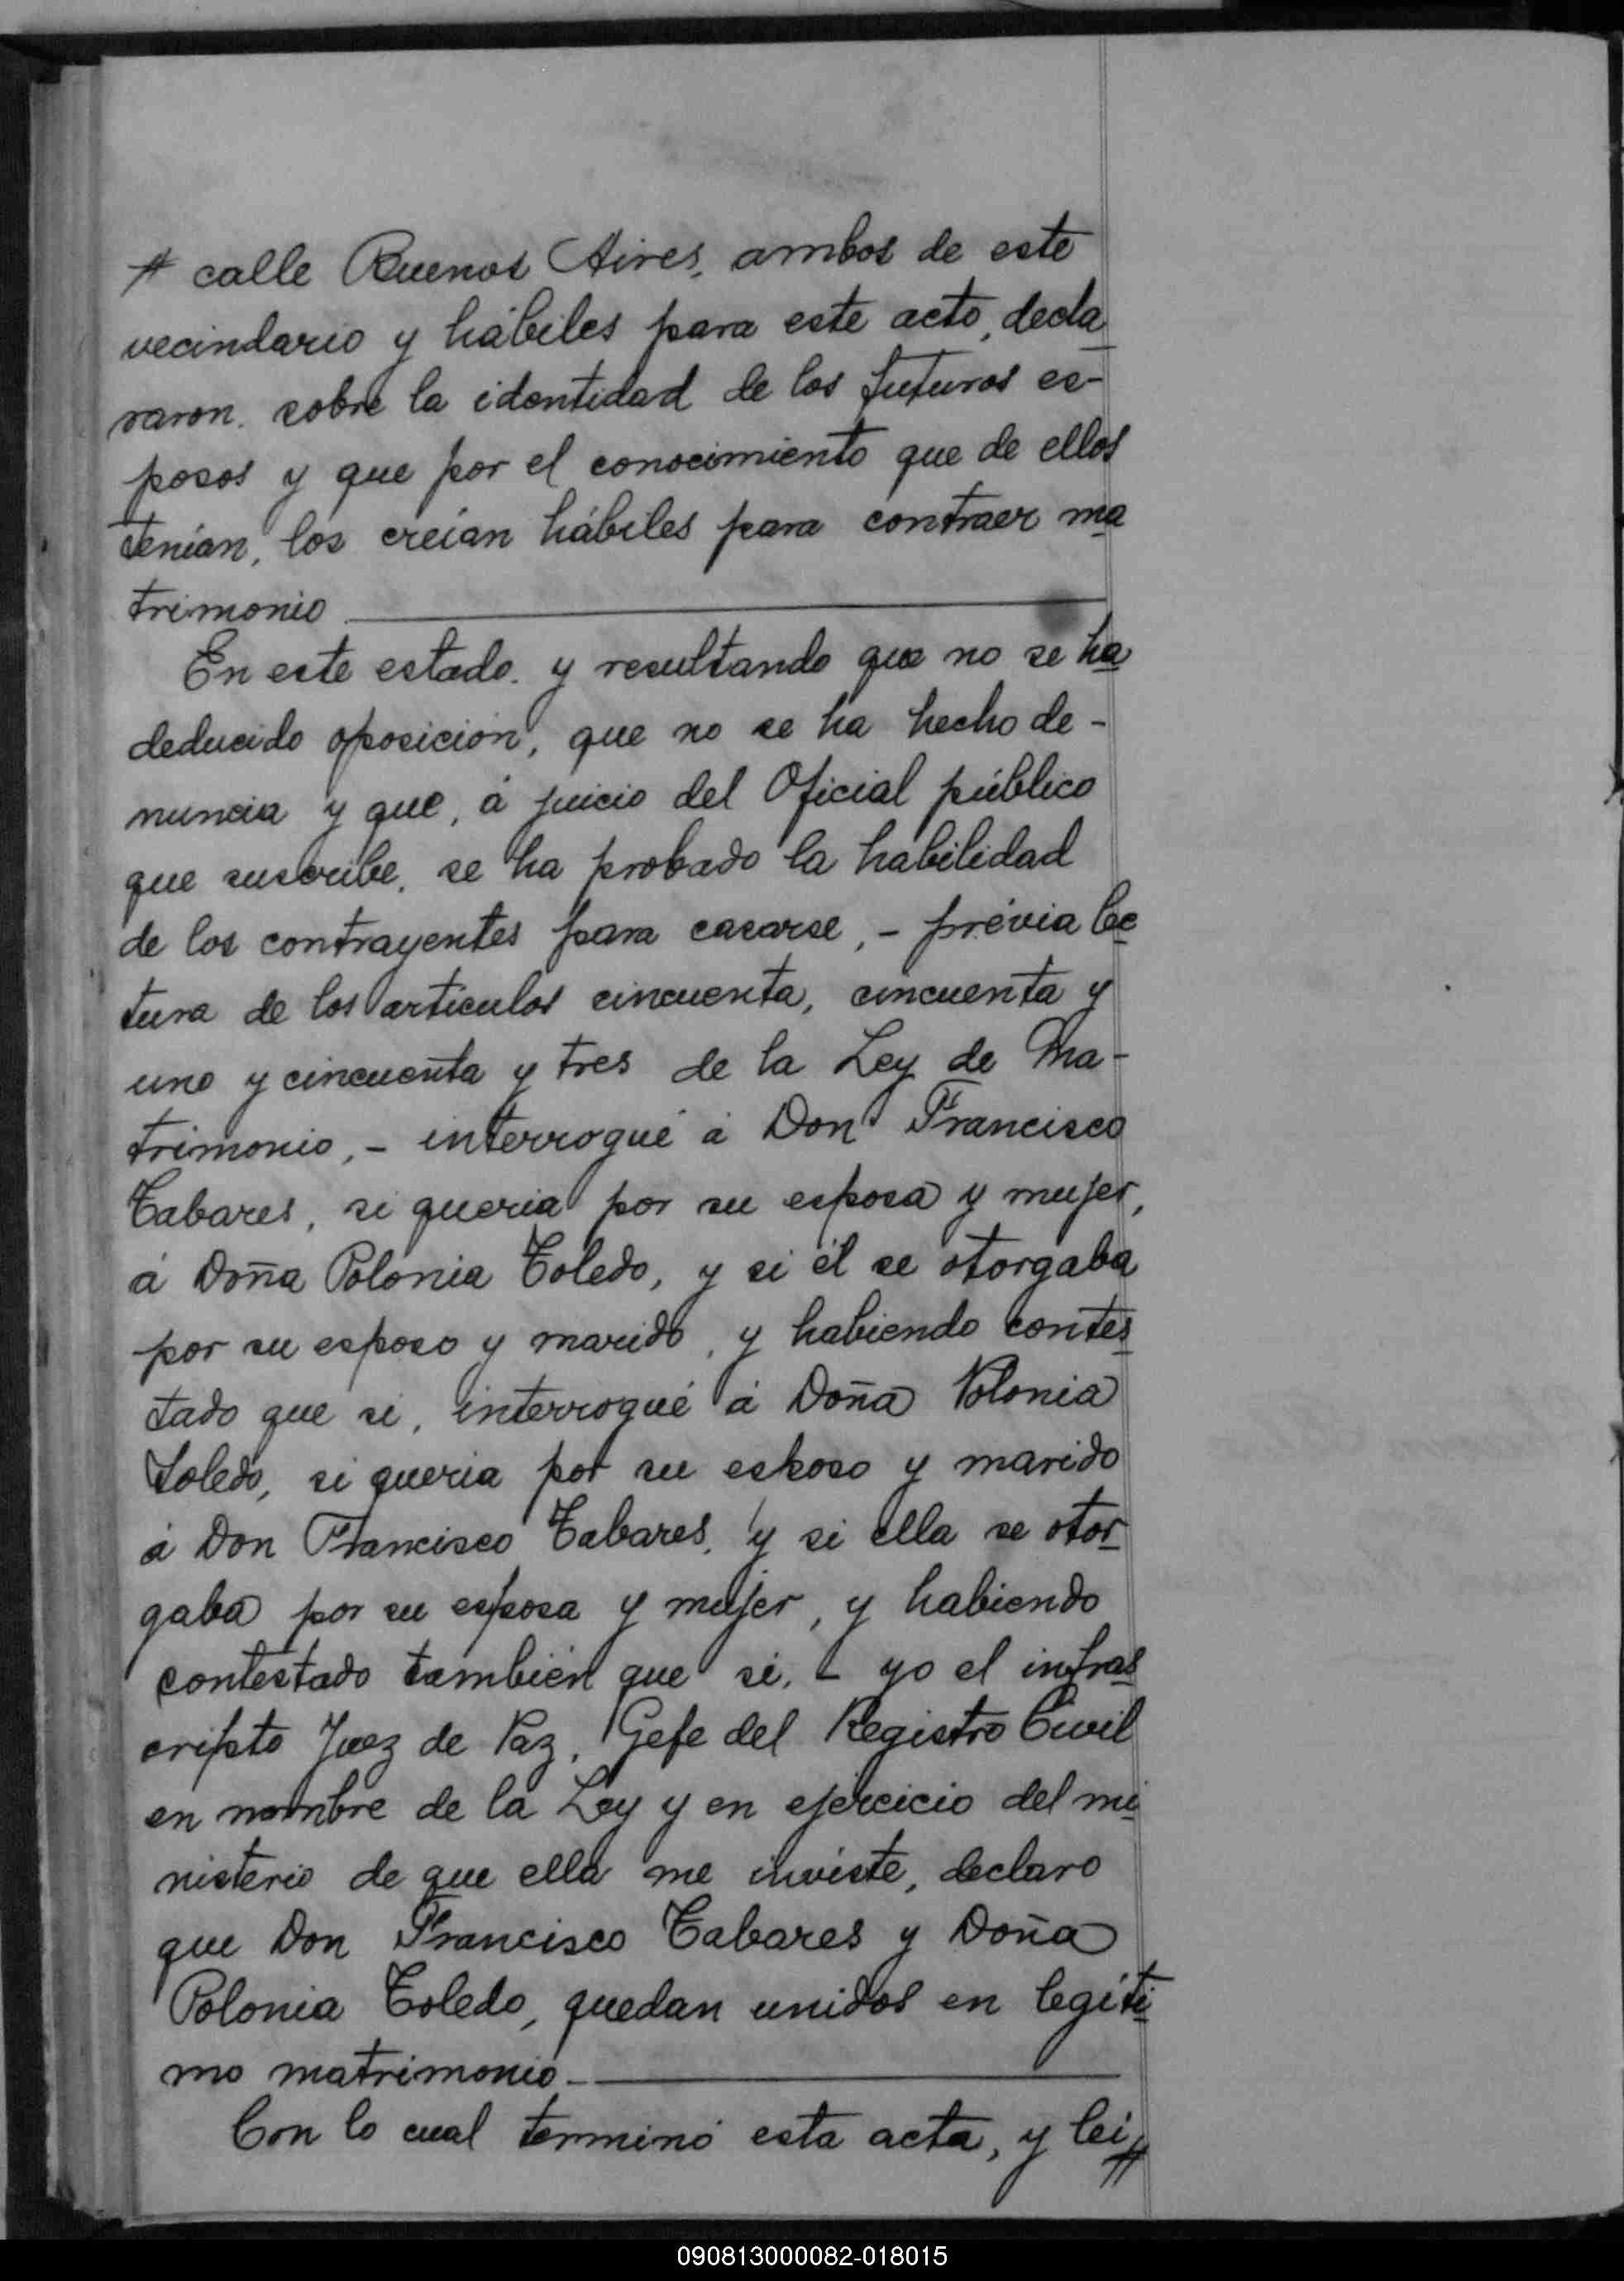 # calle Buenos Aires, ambos de este
vecindario y hábiles para este acto, decla
raron sobre la identidad de los futuros es-
posos y que por el conocimiento que de ellos
tenían, los creían hábiles para contraer ma
trimonio
En este estado y resultando que no se ha
deducido oposición, que no se ha hecho de-
nuncia y que, á juicio del Oficial público
que suscribe, se ha probado la habilidad
de los contrayentes para casarse, - prévia lec
tura de los artículos cincuenta, cincuenta y
uno y cincuenta y tres de la Ley de Ma-
trimonio, - interrogué á Don Francisco
Tabares, si queria por su esposa y mujer,
á Doña Polonia Toledo, y si él se otorgaba
por su esposo y marido, y habiendo contes
tado que si, interrogué á Doña Polonia
Toledo, si queria por su esposo y marido
á Don Francisco Tabares, y si ella se otor
gaba por su esposa y mujer, y habiendo
contestado también que si, - yo el infras
cripto Juez de Paz, Gefe del Registro Civil
en nombre de la Ley y en ejercicio del mi
nisterio de que ella me inviste, declaro
que Don Francisco Tabares y Doña
Polonia Toledo, quedan unidos en legíti
mo matrimonio
Con lo cual terminó esta acta, y leí #
090813000082-018015